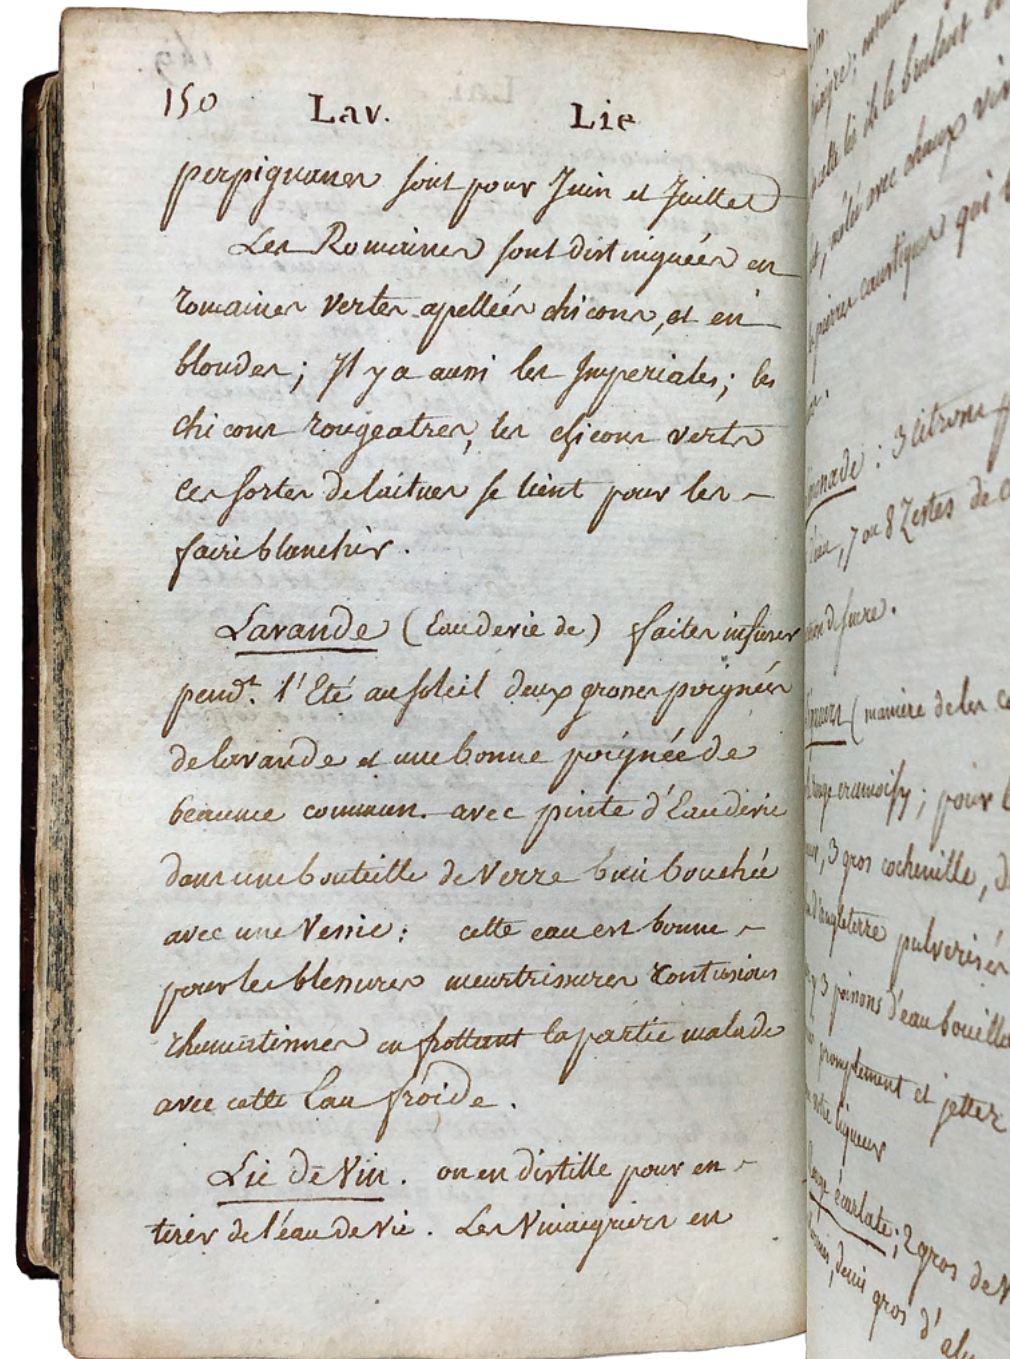 150 Lav. Lie
perpignanes sont pour Juin et Juillet
Les Romaines sont distinguées en
romaines vertes apellées chicons, et en
blondes; Il y a aussi les Imperiales; les
chicons rougeatres, les chicons verts
ces sortes de laitues se lient pour les
faire blanchir.
Lavande (Eau de vie de) faites infuser
pend.t l'Eté au soleil deux grosses poignées
de lavande et une bonne poignée de
beaume commun. avec pinte d'Eau de vie
dans une bouteille de Verre bien bouchée
avec une Vessie; cette eau est bonne
pour les blessures meurtrissures contusions
rhumatismes en frottant la partie malade
avec cette Eau froide.
Lie de Vin. on en distille pour en
tirer de l'éau de vie. Les Vinaigriers en
avec chaux
pierres caustiques qui
: 3 citrons
, 7 ou 8 Zestes de
de sucre.
(maniere de les
rouge cramoisy; pour
, 3 gros cochenille,
d'angleterre pulverisés
d'eau
promptement et jettez
votre liqueur
rouge écarlate; 2 gros de
, demi gros d'